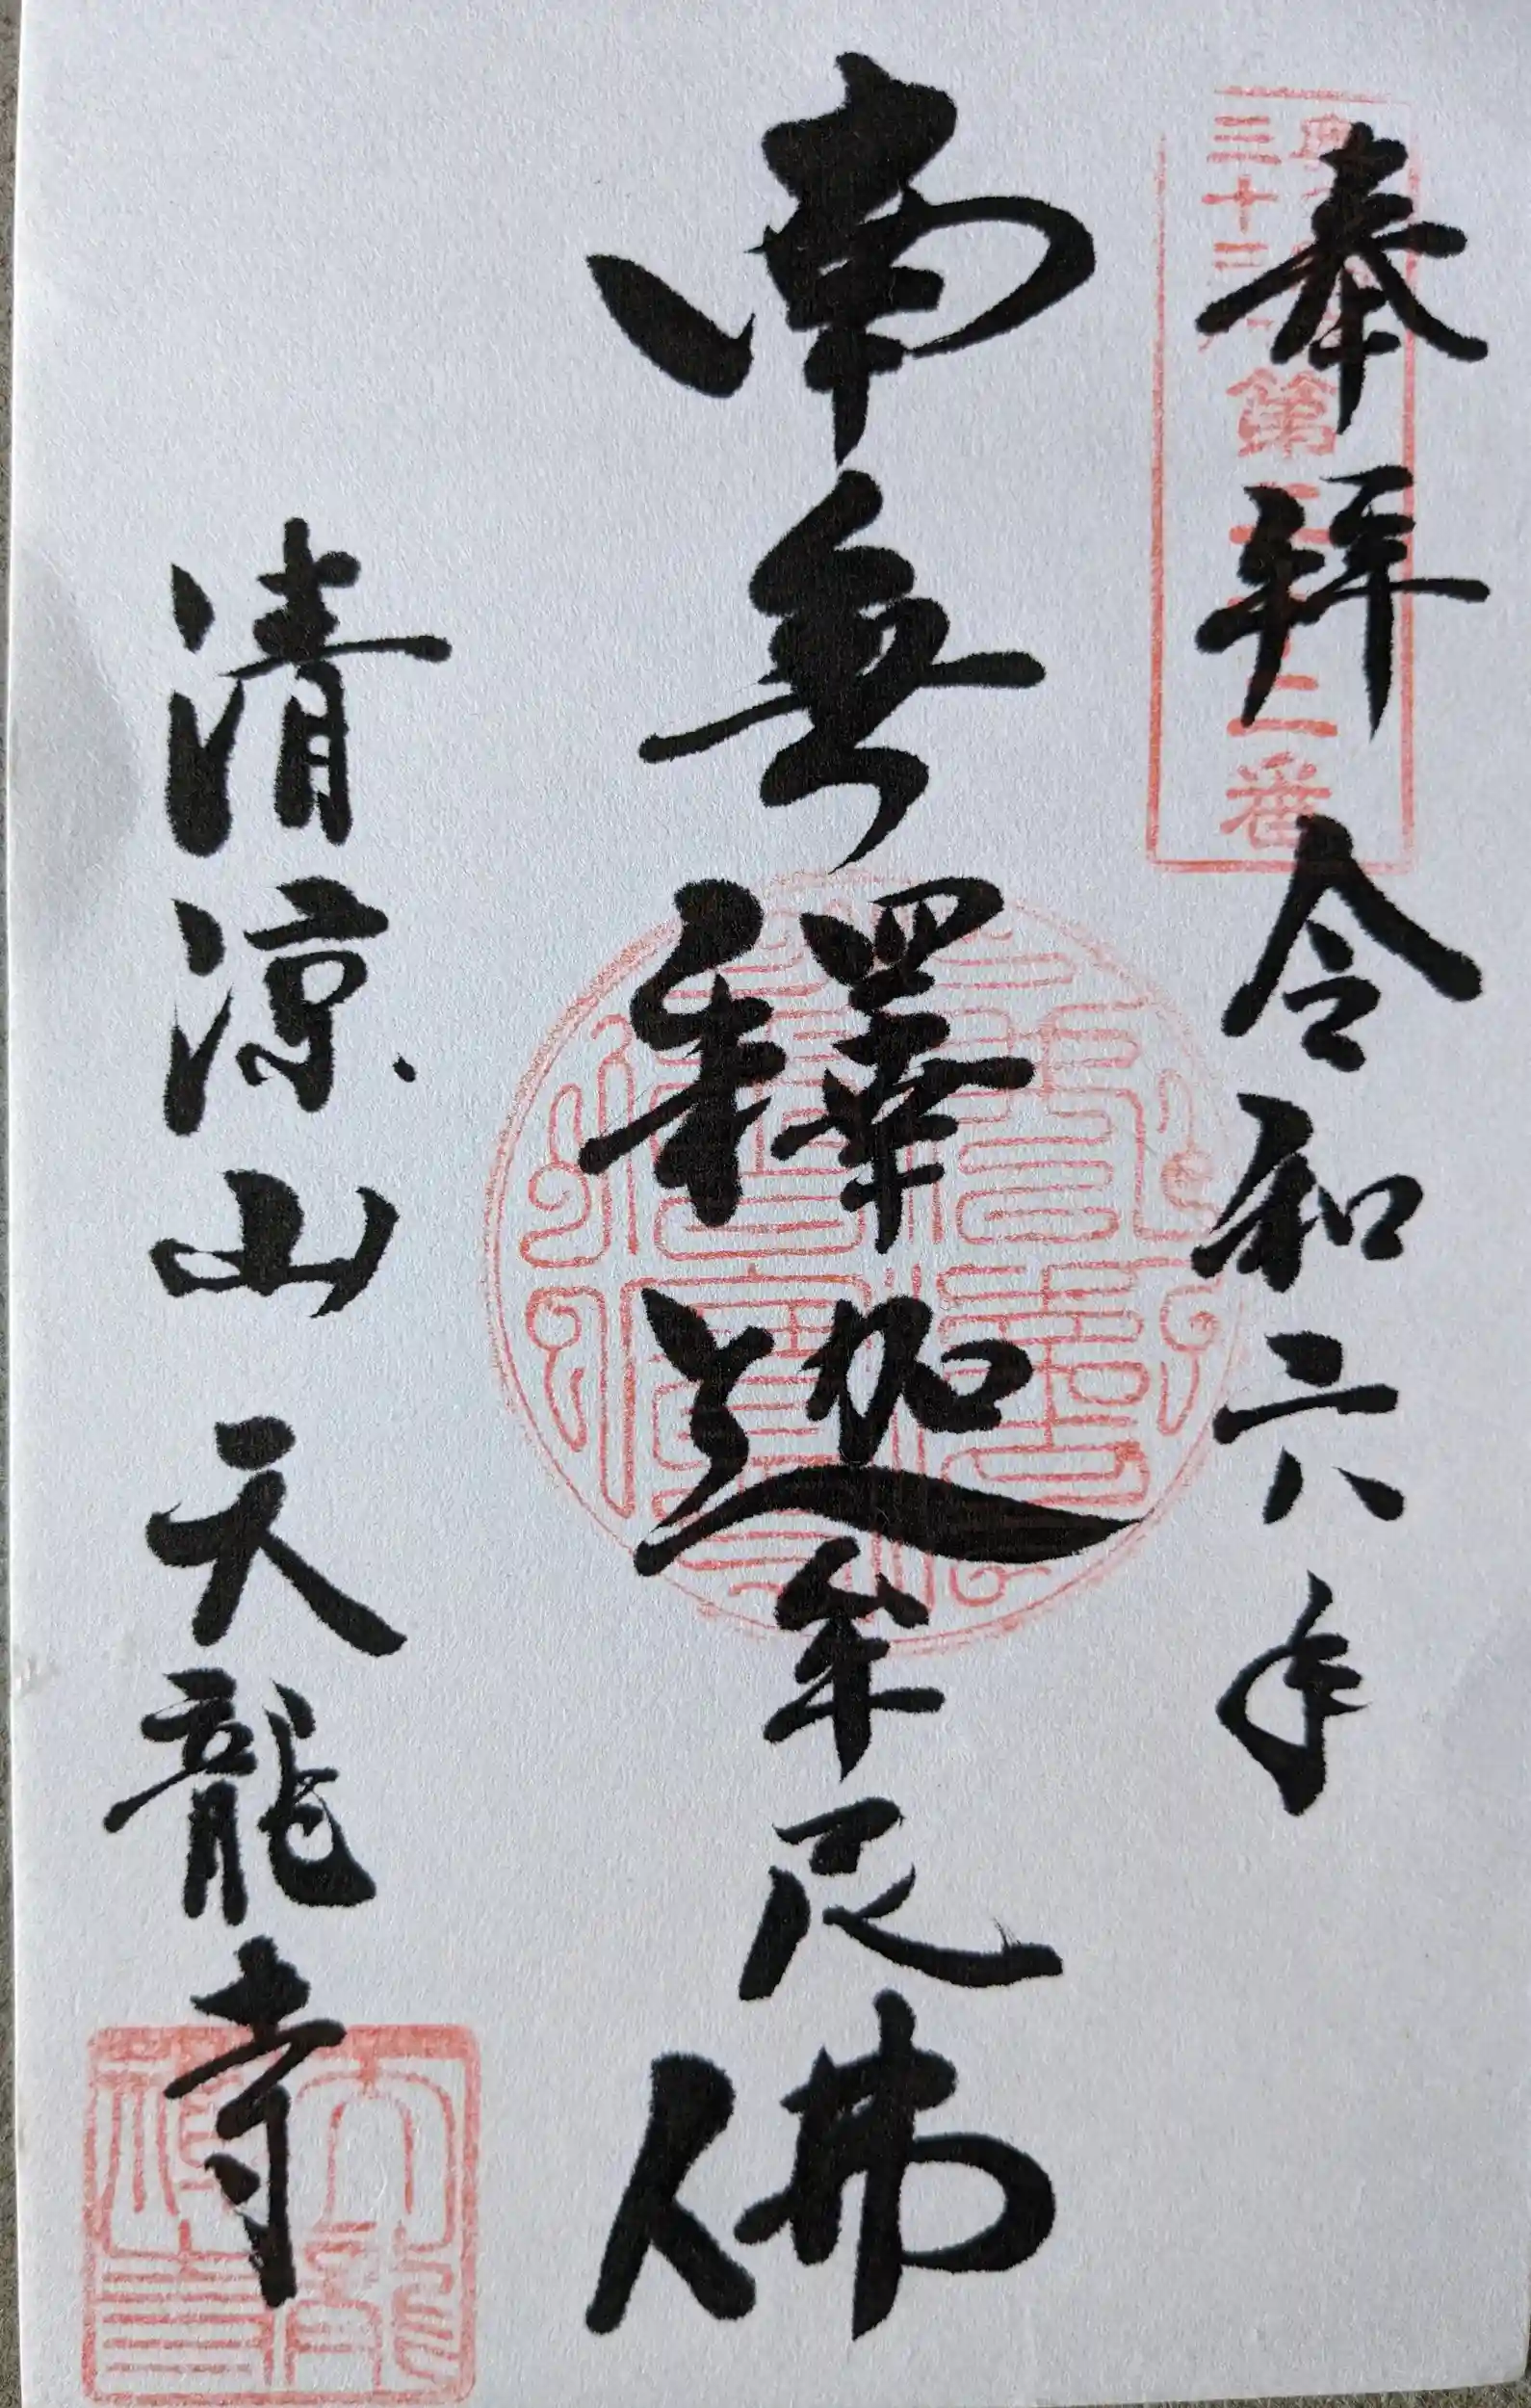 奉拝 令和六年
三十三
第二十二番
南無釋迦牟尼佛
清涼山 天龍寺